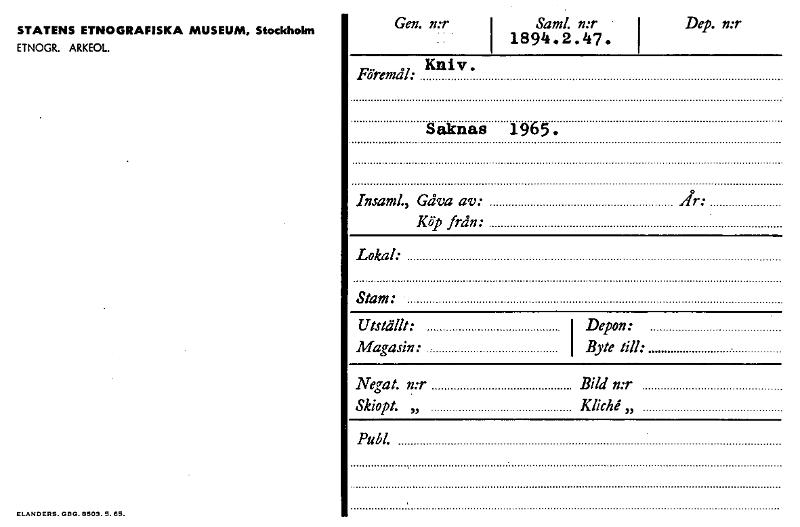 STATENS ETNOGRAFISKA MUSEUM, Stockholm
ETNOGR. ARKEOL.
Gen. n:r
Saml. n:r
1894.2.47.
Dep. n:r
Föremål: Kniv.
Saknas 1965.
Insaml., Gåva av: År:
Köp från:
Lokal:
Stam:
Utställt: Depon:
Magasin: Byte till:
Negat. n:r Bild n:r
Skiopt. „ Kliché „
Publ.
ELANDERS. GBG. 8503. 5. 65.